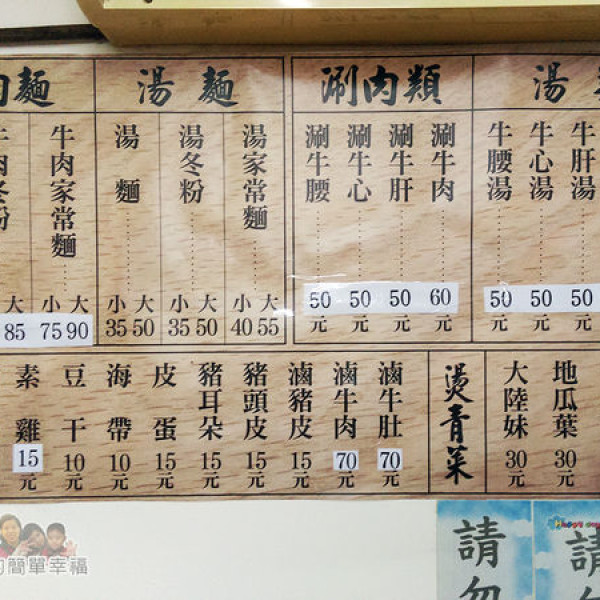 湯
涮肉類
湯麵
肉麵
牛肝湯 50元
牛心湯 50元
牛腰湯 50元
涮牛肉 60元
涮牛肝 50元
涮牛心 50元
涮牛腰 50元
湯家常麵 大55 小40
湯冬粉 大50 小35
湯麵 大50 小35
牛肉家常麵 大90 小75
牛肉冬粉 大85
地瓜葉 30元
大陸妹 30元
燙青菜
滷牛肚 70元
滷牛肉 70元
滷豬皮 15元
豬頭皮 15元
豬耳朵 15元
皮蛋 15元
海帶 10元
豆干 10元
素雞 15元
請勿
請勿
的簡單幸福